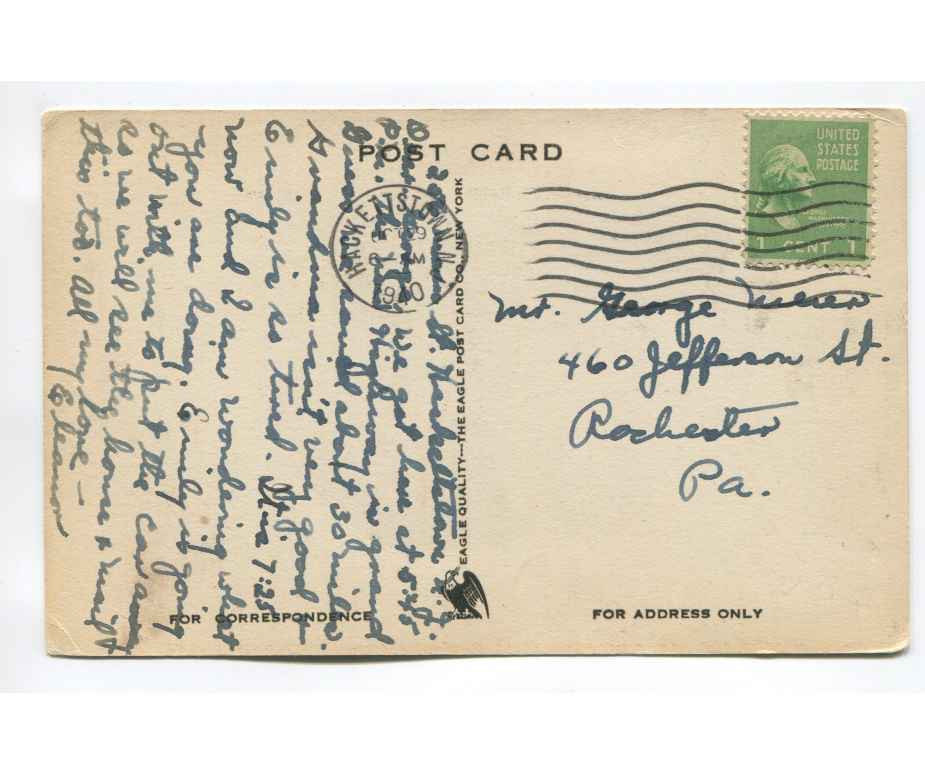 POST CARD
UNITED
STATES
POSTAGE
1 CENT 1
HACKETTSTOWN N
OCT 9
AM
1940
EAGLE QUALITY—THE EAGLE POST CARD CO., NEW YORK
St. Hackettstown N.J.
We got here at 5:45
P. Highway is grand
about 30 miles
isn't very good —
Emily is so tired. It is 7:25
now and I am wondering what
you are doing. Emily is going
out with me to put the card
as we will see they home & mail
this too. All my love —
Eleanor
Mr. George Meier
460 Jefferson St.
Rochester
Pa.
FOR CORRESPONDENCE
FOR ADDRESS ONLY